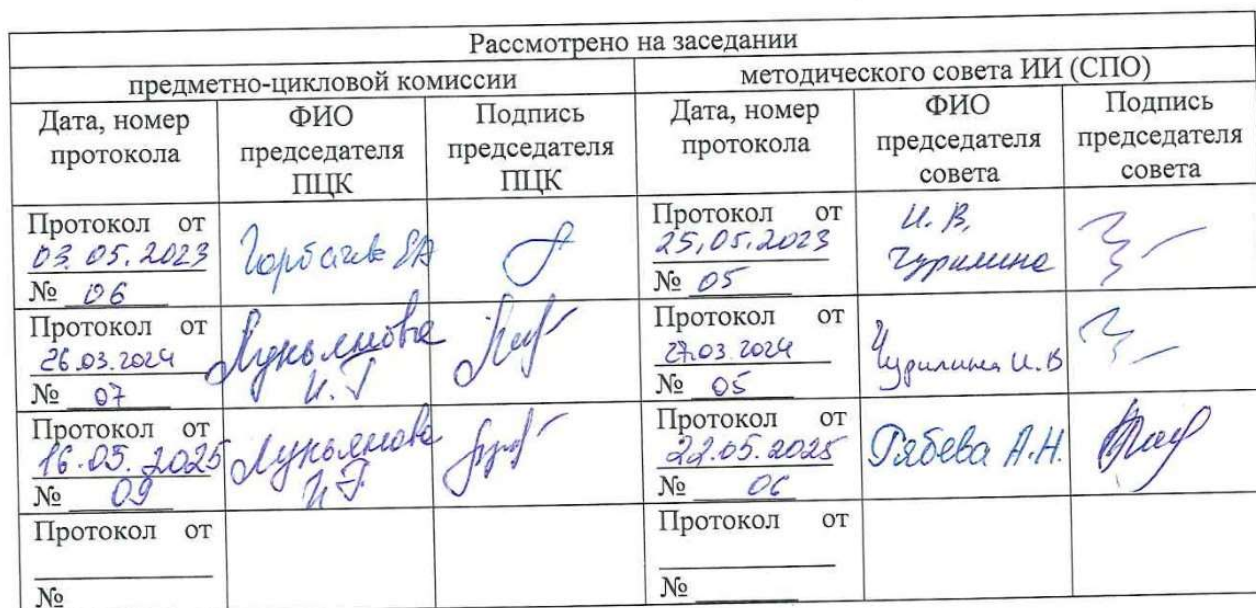 Рассмотрено на заседании
предметно-цикловой комиссии методического совета ИИ (СПО)
Дата, номер протокола ФИО председателя ПЦК Подпись председателя ПЦК Дата, номер протокола ФИО председателя совета Подпись председателя совета
Протокол от
03.05.2023
№ 06
Протокол от
25.05.2023
№ 05
И. В.
Чурилина
Протокол от
26.03.2024
№ 07
Лукьянова
И. Г
Протокол от
27.03.2024
№ 05
Чурилина И.В
Протокол от
16.05.2025
№ 09
Лукьянова
И.Г.
Протокол от
22.05.2025
№ 06
Рябева А.Н.
Протокол от
№
Протокол от
№